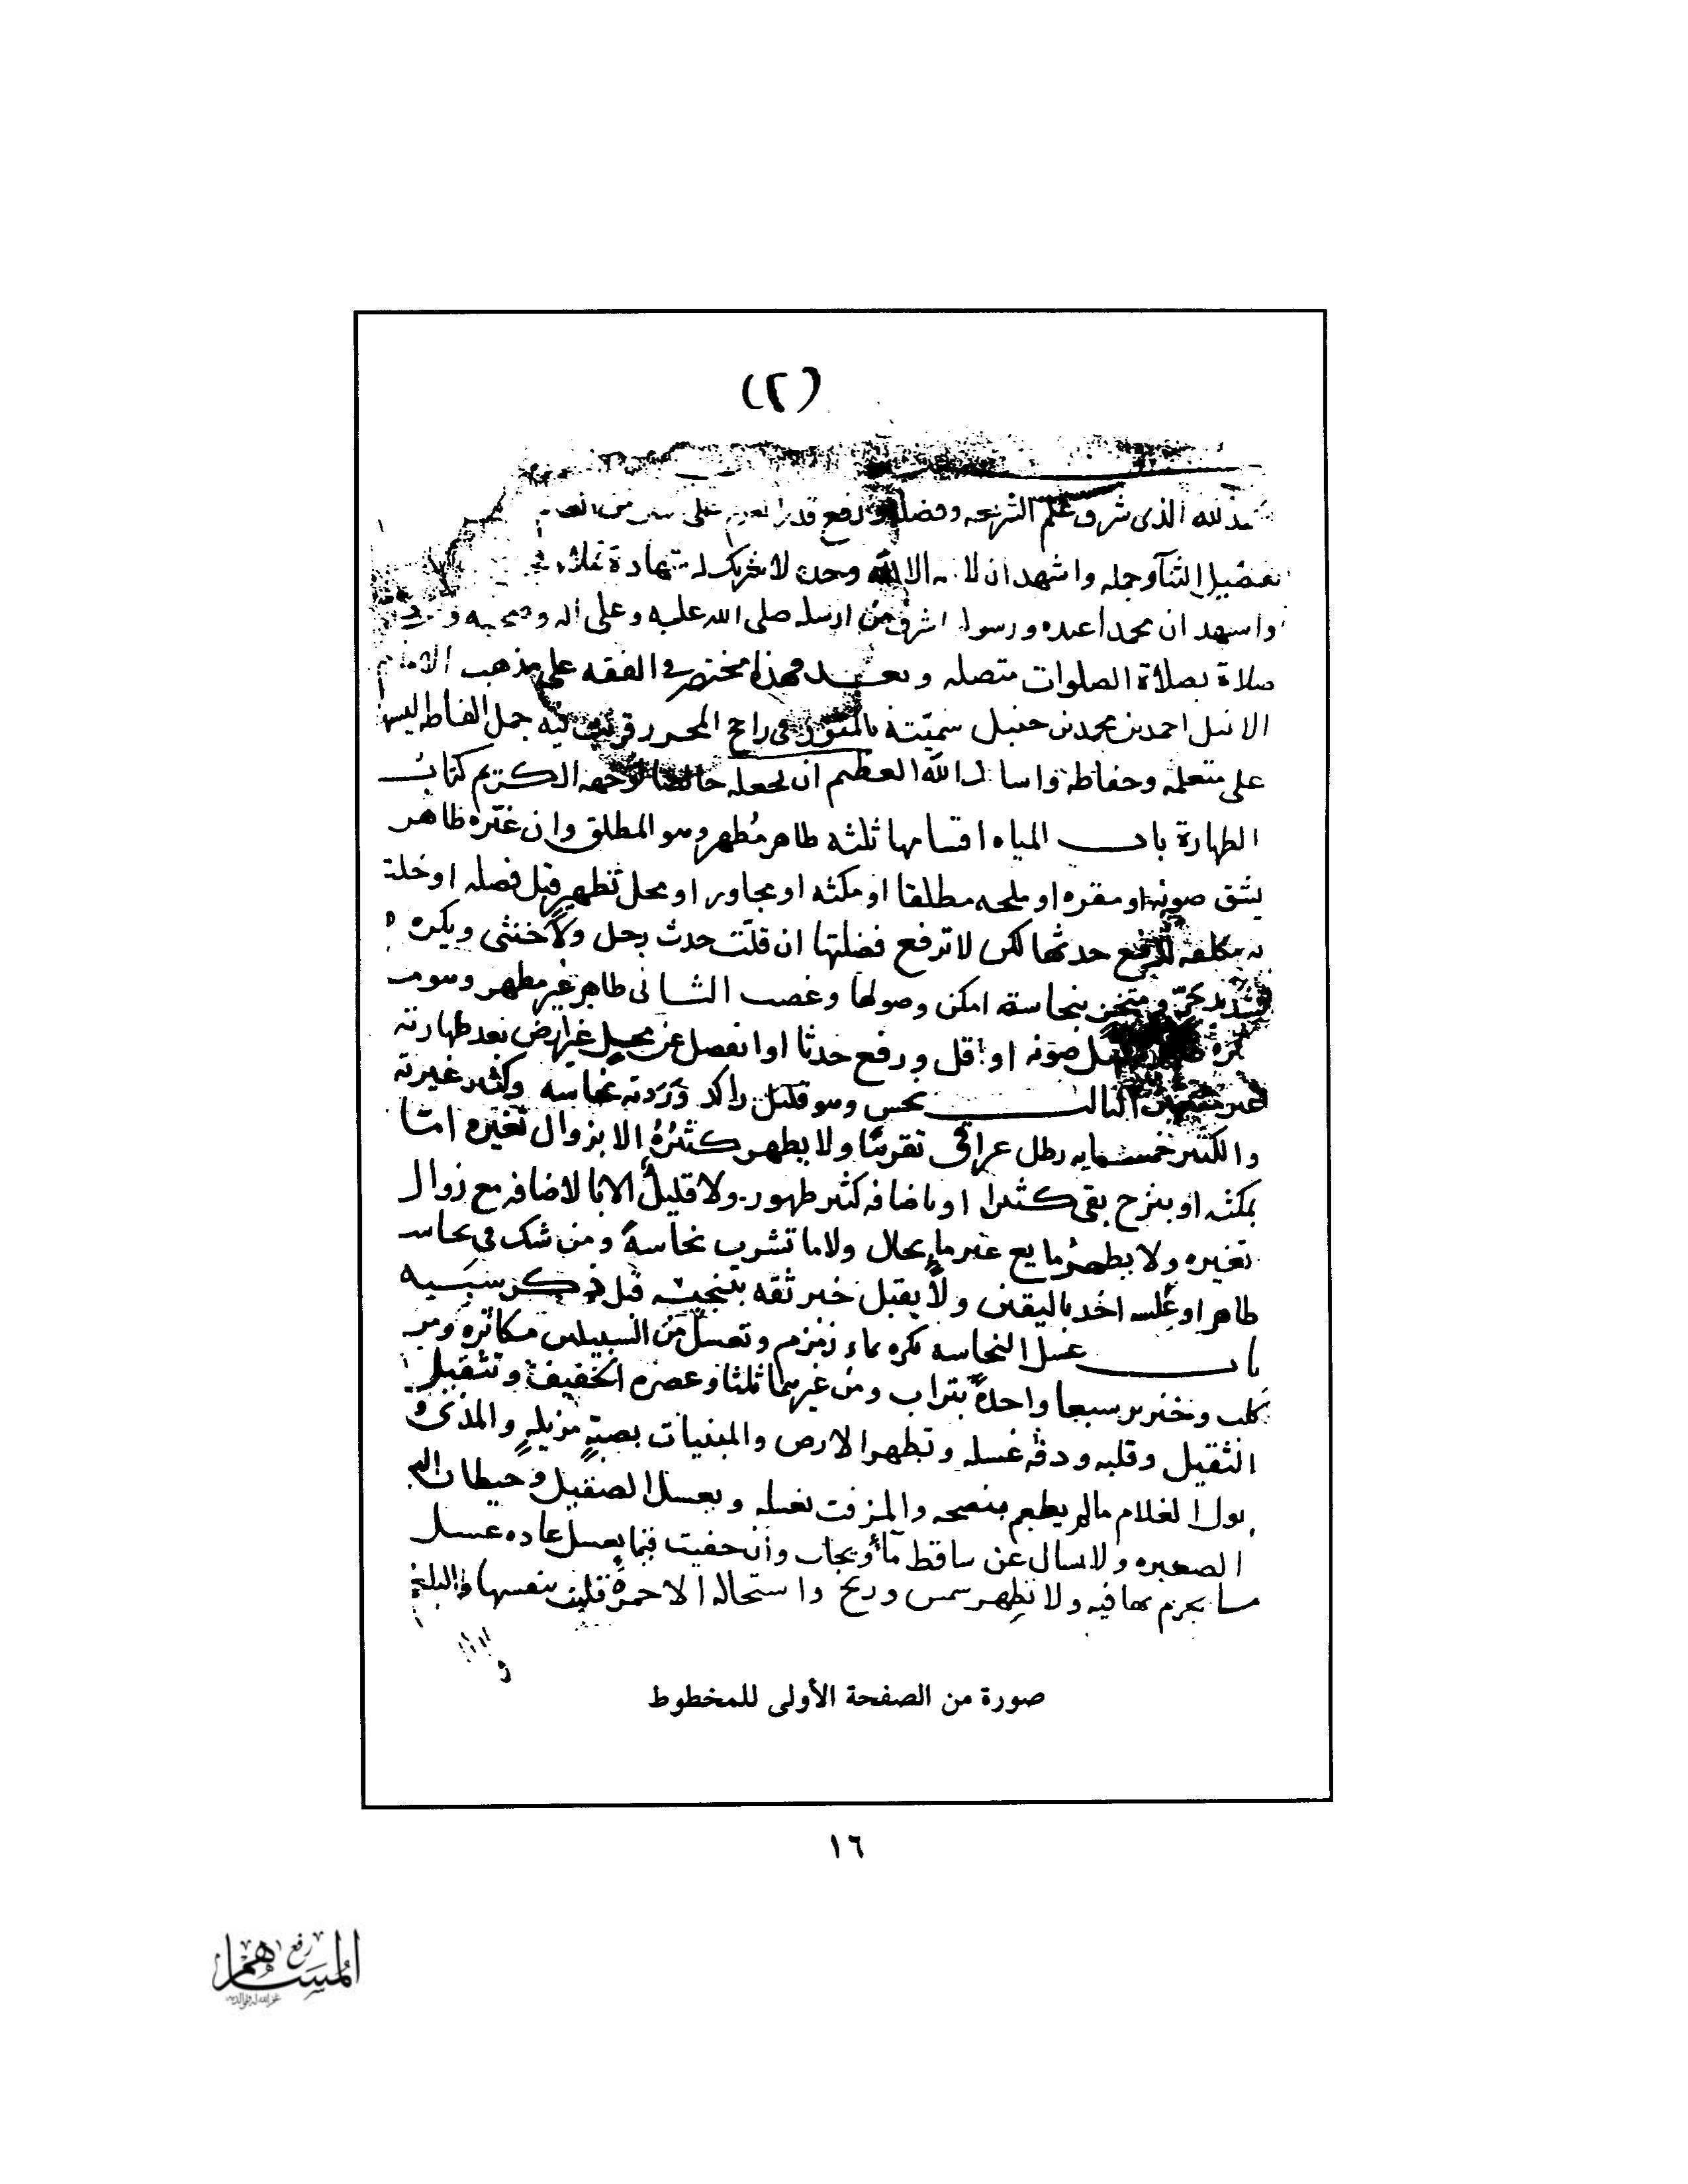 (٢)
لله الذى شرف علم الشريعه وفضله ورفع قدر
تفضيل الثنآ وجمله واشهد ان لا اله الا الله وحده لا شريك له شهادة
واشهد ان محمدا عبده ورسوله اشرف من ارسله صلى الله عليه وعلى اله وصحبه
صلاة بصلاة الصلوات متصله وبعد فهذا مختصر فى الفقه على مذهب الامام
احمد بن محمد بن حنبل سميّته بالمنور فى راجح المحرر قربت فيه جمل الفاظه ليسهل
على متعلمه وحفاظه واسال الله العظيم ان يجعله خالصا لوجهه الكريم كتاب
الطهارة باب المياه اقسامها ثلثه طاهر مُطهر وهو المطلق وان غيّره طاهر
يشق صونه او مقره او ملحه مطلقا او مكثه او مجاور او محل تطهير قبل فصله او خلت
به مكلفه لرفع حدثها لكن لا ترفع فضلتها ان قلّت حدث رجل ولا خنثى ويكره
شديد حرّ ومتسخن بنجاسة امكن وصولها وغصب الثانى طاهر غير مطهر وهو
صونه او قل ورفع حدثا او انفصل عن محل غير ارض بعد طهارته
الثالث نجس وهو قليل راكد وَرَدته نجاسه وكثير غيرته
والكثير خمسمايه رطل عراقى تقريبًا ولا يطهر كثيرُهُ الا بزوال تغيره امّا
بمكثه او بنزح بقى كثيرا او باضافه كثير طهور ولا قليلُه الا بالاضافه مع زوال
تغيره ولا يطهرُ مايع غير ماء بحال ولا ما تشرب نجاسةً ومن شك فى نجاسه
طاهر او عكسه اخذ باليقين ولا يقبل خبر ثقه بتنجيسه قبل ذكر سببه
باب غسل النجاسه يكره بماء زمزم وتغسل من السبيلين مكاثره ومن
كلب وخنزير سبعا واحدةٌ بتراب ومن غيرهما ثلثا وعصره الخفيف وتثقيل
الثقيل وقلبه ودقه غسله وتطهر الارض والمبنيات بصبّةٍ مزيلةٍ والمذى و
بول الغلام مالم يطعم بنضحه والمزفت بغسله ويغسل الصقيل وحيطان
الصغيره ولا يسال عن ساقط مآؤ ويجاب وان خفيت فيما يغسل عاده غسل
ما يجزم بها فيه ولا تطهر شمس وريح واستحاله الا خمرةً قلبت بنفسها
صورة من الصفحة الأولى للمخطوط
١٦
المساهم
رفع